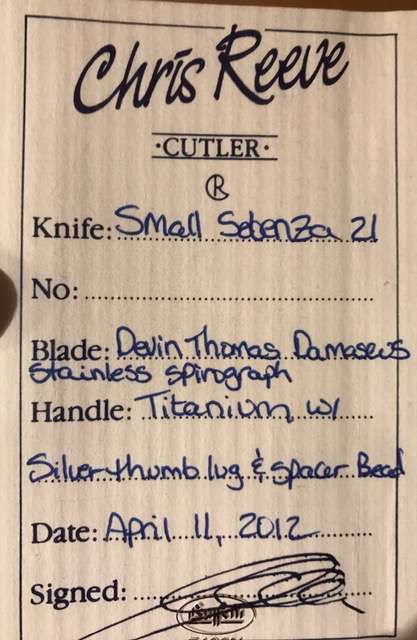 Chris Reeve
·CUTLER·
CR
Knife: Small Sebenza 21
No:
Blade: Devin Thomas Damascus
Stainless Spirograph
Handle: Titanium w/
Silver thumb lug & spacer Bead
Date: April 11, 2012
Signed: